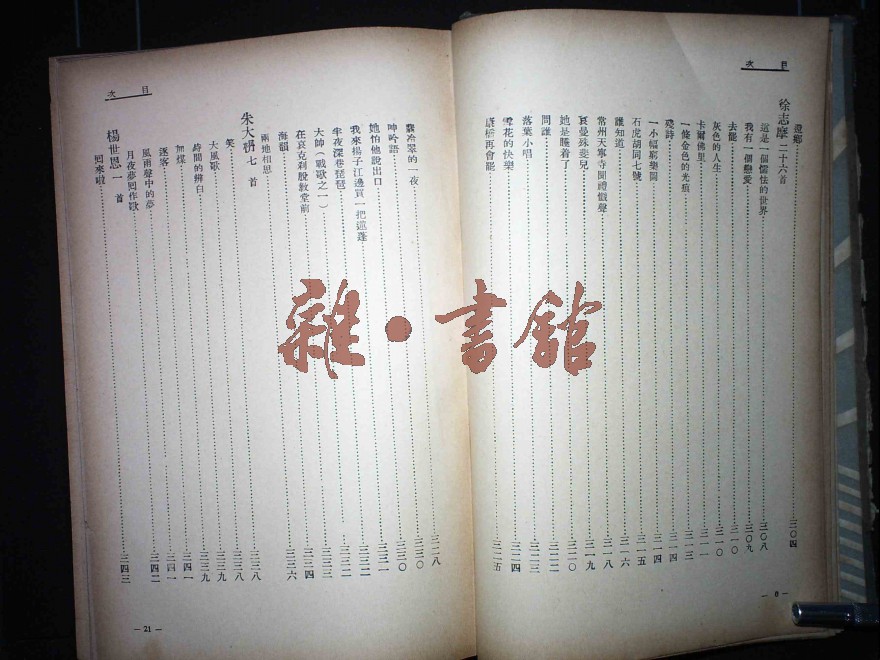 目次
澄鄉……三〇四
徐志摩二十六首
這是一個懦怯的世界……三〇八
我有一個戀愛……三〇九
去罷……三一〇
灰色的人生……三一〇
卡爾佛里……三一一
一條金色的光痕……三一三
殘詩……三一四
一小幅窮樂圖……三一四
石虎胡同七號……三一五
誰知道……三一六
常州天寧寺聞禮懺聲……三一八
哀曼殊斐兒……三一九
她是睡着了……三二〇
問誰……三二二
落葉小唱……三二三
雪花的快樂……三二四
康橋再會罷……三二五
— 6 —
目次
翡冷翠的一夜……三二八
呻吟語……三三〇
她怕他說出口……三三〇
我來揚子江邊買一把蓮蓬……三三一
半夜深巷琵琶……三三二
大帥(戰歌之一)……三三二
在哀克刹脫教堂前……三三四
海韻……三三六
兩地相思
朱大枬七首
笑……三三八
大風歌……三三八
時間的辨白……三三九
加煤……三三九
逐客……三四一
風雨聲中的夢……三四一
月夜夢囘作歌……三四二
楊世恩一首
囘來啦……三四三
— 21 —
雜·書館